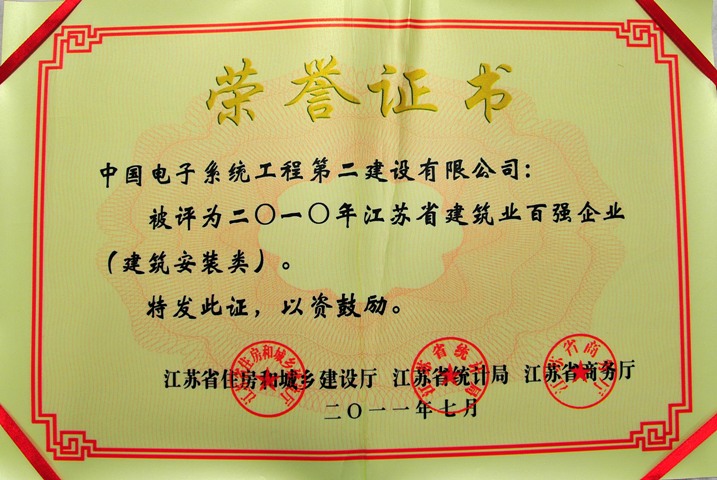 荣誉证书
中国电子系统工程第二建设有限公司：
被评为二〇一〇年江苏省建筑业百强企业
（建筑安装类）。
特发此证，以资鼓励。
江苏省住房和城乡建设厅 江苏省统计局 江苏省商务厅
二〇一一年七月